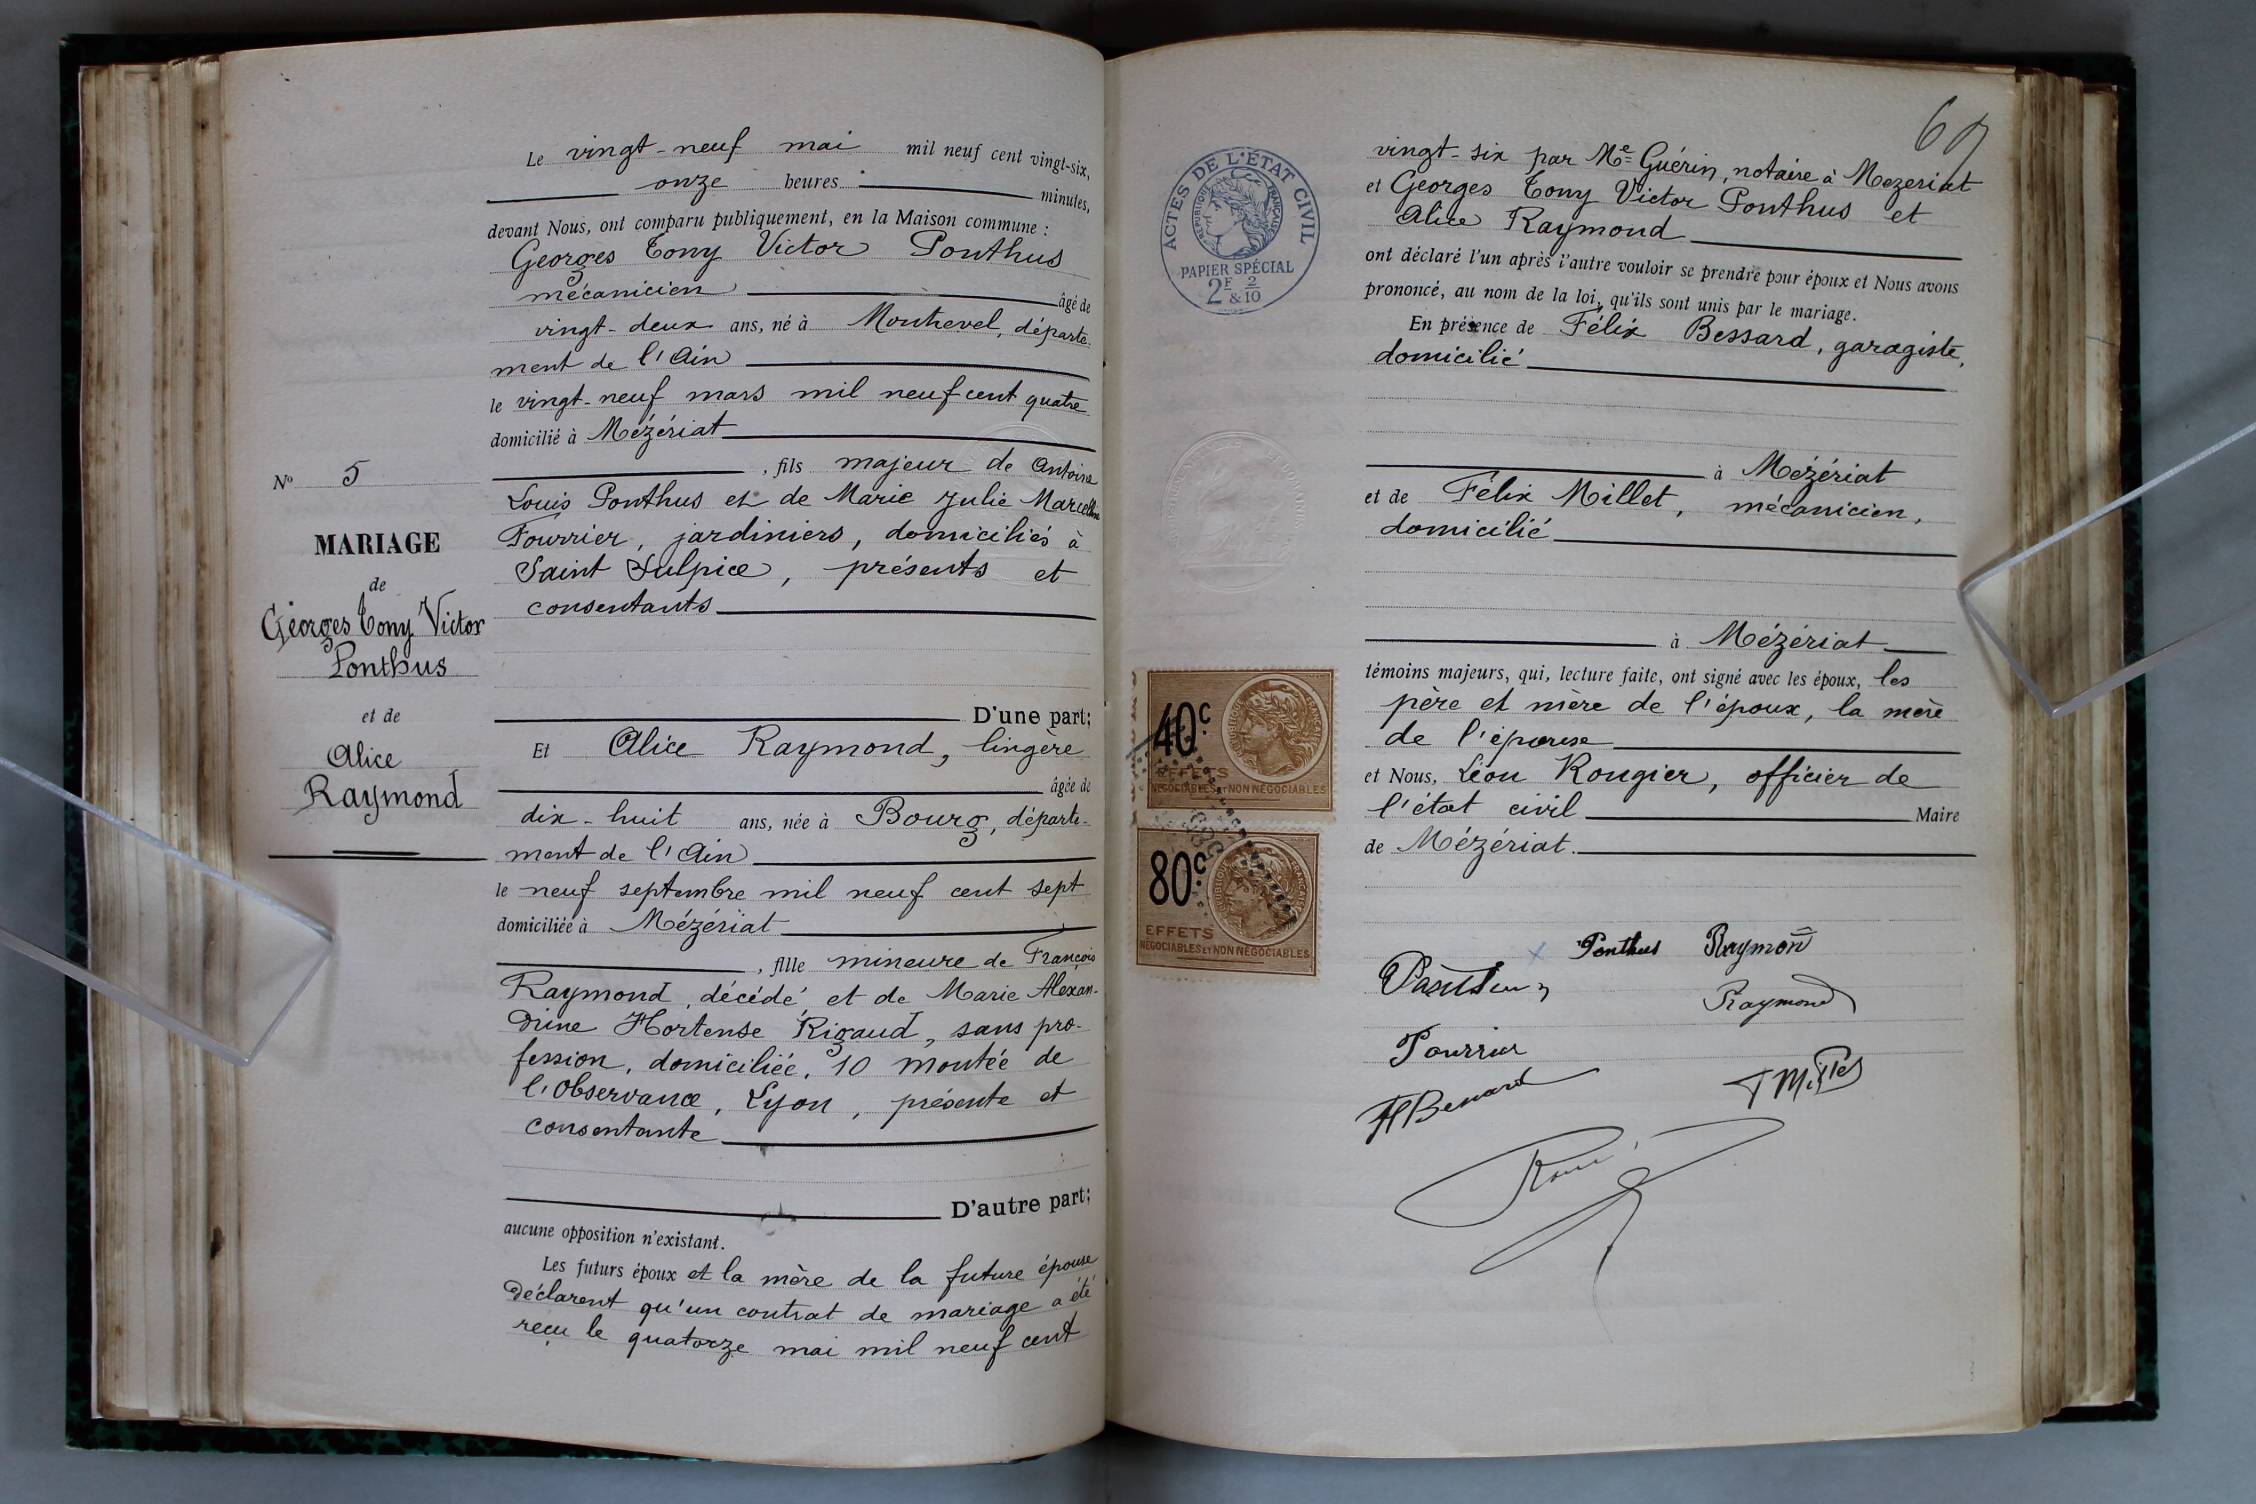 Le vingt-neuf mai mil neuf cent vingt-six,
onze heures minutes,
devant Nous, ont comparu publiquement, en la Maison commune :
Georges Tony Victor Ponthus
mécanicien âgé de
vingt-deux ans, né à Montrevel, départe-
ment de l'Ain
le vingt-neuf mars mil neuf cent quatre
domicilié à Mézériat
, fils majeur de Antoine
Louis Ponthus et de Marie Julie Marcelline
Fourrier, jardiniers, domiciliés à
Saint Sulpice, présents et
consentants
D'une part;
Et Alice Raymond, lingère
âgée de
dix-huit ans, née à Bourg, départe-
ment de l'Ain
le neuf septembre mil neuf cent sept
domiciliée à Mézériat
, fille mineure de François
Raymond, décédé et de Marie Alexan-
drine Hortense Rigaud, sans pro-
fession, domiciliée, 10 montée de
l'Observance, Lyon, présente et
consentante
D'autre part;
aucune opposition n'existant.
Les futurs époux et la mère de la future épouse
déclarent qu'un contrat de mariage a été
reçu le quatorze mai mil neuf cent
No 5
MARIAGE
de
Georges Tony Victor
Ponthus
et de
Alice
Raymond
ACTES DE L'ÉTAT CIVIL
RÉPUBLIQUE FRANÇAISE
PAPIER SPÉCIAL
2F & 2/10
40c
EFFETS
NÉGOCIABLES ET NON NÉGOCIABLES
80c
EFFETS
NÉGOCIABLES ET NON NÉGOCIABLES
vingt-six par Me Guérin, notaire à Mezeriat
et Georges Tony Victor Ponthus et
Alice Raymond
ont déclaré l'un après l'autre vouloir se prendre pour époux et Nous avons
prononcé, au nom de la loi, qu'ils sont unis par le mariage.
En présence de Félix Bessard, garagiste,
domicilié
à Mézériat
et de Félix Millet, mécanicien,
domicilié
à Mézériat
témoins majeurs, qui, lecture faite, ont signé avec les époux, les
père et mère de l'époux, la mère
de l'épouse
et Nous, Léon Rougier, officier de
l'état civil Maire
de Mézériat.
Ponthus Raymond
Ponthus
Raymond
Fourrier
F Bessard
F Millet